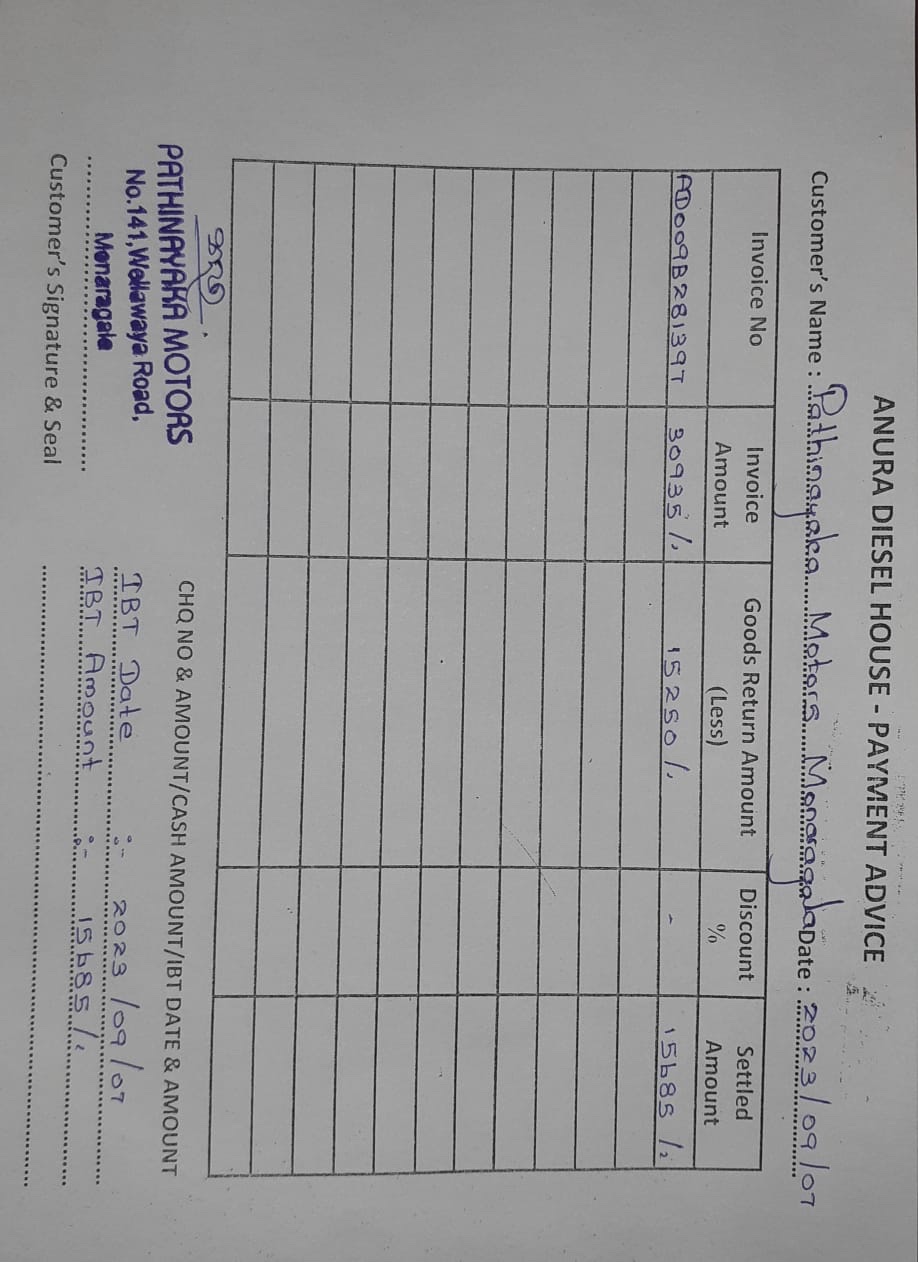 ANURA DIESEL HOUSE - PAYMENT ADVICE
Customer's Name : Pathinayaka Motors Monaragala Date : 2023/09/07
Invoice No Invoice Amount Goods Return Amount (Less) Discount % Settled Amount
AD009B281397 30935/. 15250/. - 15685/.
CHQ NO & AMOUNT/CASH AMOUNT/IBT DATE & AMOUNT
PATHINAYAKA MOTORS
No.141,Wellawaya Road,
Monaragala
Customer's Signature & Seal
IBT Date :- 2023/09/07
IBT Amount :- 15685/.